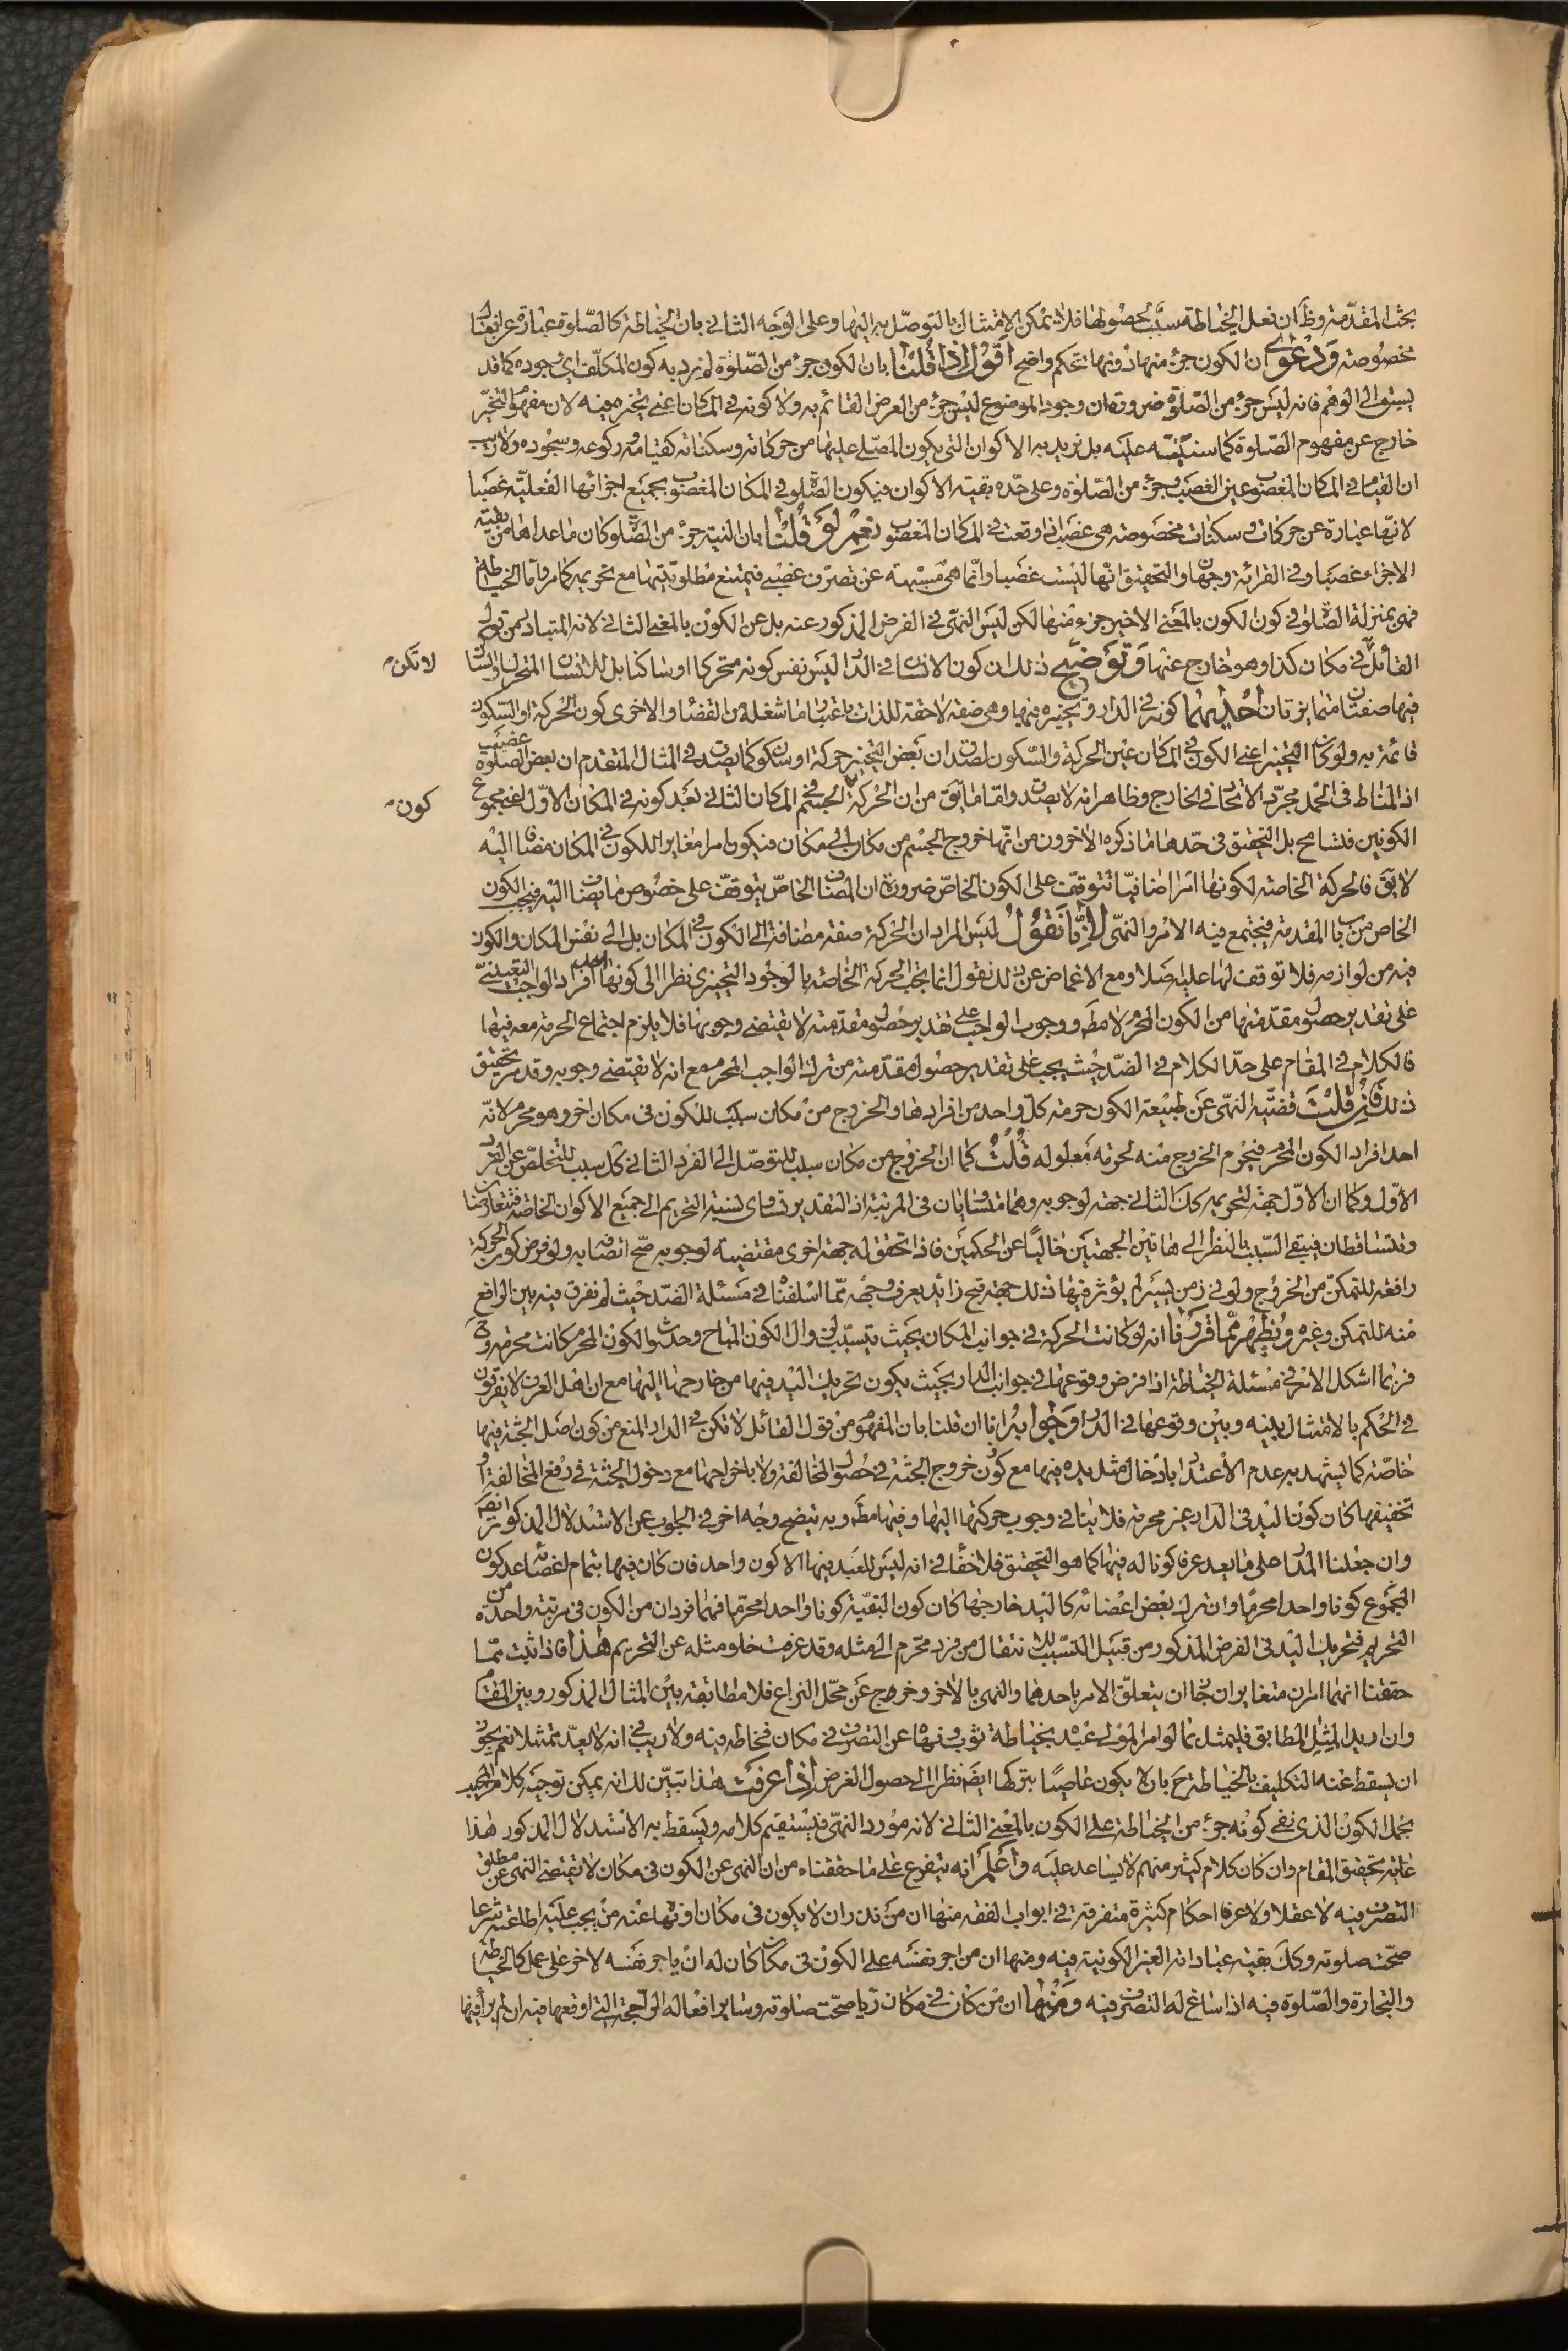 بحث المقدّمة وظ ان فعل الخياطة سبب لحصولها فلا يمكن الامتثال بالتوصّل به اليها وعلى الوجه الثاني بان الخياطة كالصّلوة عبارة عن افعال
مخصوصة ودعوى ان الكون جزء منها دونها تحكم واضح اقول اذا قلنا بان الكون جزء من الصّلوة لم نرد به كون المكلّف اى وجوده كما قد
يسبق الى الوهم فانه ليس جزء من الصّلوة ضرورة ان وجود الموضوع ليس جزء من العرض القائم به ولا كونه فى المكان اعنى تحيّزه فيه لان مفهوم التحيّز
خارج عن مفهوم الصّلوة كما سننبّه عليه بل نريد به الاكوان التى يكون المصلّى عليها من حركاته وسكناته كقيامه وركوعه وسجوده ولا ريب
ان القيام فى المكان المغصوب عين الغصب وجزء من الصّلوة وعلى حدّه بقية الاكوان فيكون الصّلوة فى المكان المغصوب بجميع اجزائها الفعليّة غصبا
لانها عبارة عن حركات وسكنات مخصوصة هى غصب اذا وقعت فى المكان المغصوب نعم لو قلنا بان النية جزء من الصّلوة كان ما عداها من بقيّة
الاجزاء غصبا وفى القرائة وجهان والتحقيق انّها ليست غصبا وانّما هى مسبّبة عن تصرّف غصبى فيمتنع مطلوبيّتها مع تحريمه كما مر وامّا الخياطة
فهى بمنزلة الصّلوة فى كون الكون بالمعنى الاخير جزء منها لكن ليس النهى فى الفرض المذكور عنه بل عن الكون بالمعنى الثانى لانه المتبادر من قول
القائل فى مكان كذا وهو خارج عنها وتوضيح ذلك ان كون الانسان فى الدار ليس نفس كونه متحركا او ساكنا بل للانسان المتحرك او الساكن
لا تكن
فيها صفتان متمايزتان احديهما كونه فى الدار وتحيّزه فيها وهى صفة لاحقة للذات باعتبار ما شغله من الفضاء والاخرى كون الحركة او السكون
قائمة به ولو كان التحيّز اعنى الكون فى المكان عين الحركة والسّكون لصدق ان بعض التحيّز حركة او سكون كما يصدق فى المثال المتقدم ان بعض الصلوة غصب
اذ المناط فى الحمل مجرّد الاتحاد فى الخارج وظاهر انه لا يصدق وامّا ما يق من ان الحركة الجسم فى المكان الثانى بعد كونه فى المكان الاوّل اعنى مجموع
كون
الكونين فتسامح بل التحقيق فى حدّها ما ذكره الاخرون من انّها خروج الجسم من مكان الى مكان فيكون امرا مغايرا للكون فى المكان مضافا اليه
لا يق فالحركة الخاصّة لكونها امرا اضافيّا تتوقف على الكون الخاصّ ضرورة ان المضاف الخاصّ يتوقف على خصوص ما يضاف اليه فيجب الكون
الخاص من باب المقدمة فيجتمع فيه الامر والنهى لانّا نقول ليس المراد ان الحركة صفة مضافة الى الكون فى المكان بل الى نفس المكان والكون
فيه من لوازمه فلا توقف لها عليه اصلا ومع الاغماض عن ذلك نقول انما يجب الحركة الخاصّة بالوجوب التخييرى نظرا الى كونها احد افراد الواجب التعيينى
على تقدير حصول مقدّمتها من الكون المحرم لا مطم ووجوب الواجب على تقدير حصول مقدّمته لا يقتضى وجوبها فلا يلزم اجتماع الحرمة معه فيها
فالكلام فى المقام على حدّ الكلام فى الضدّ حيث يجب على تقدير حصول مقدّمته من ترك الواجب المحرم مع انه لا يقتضى وجوبه وقد مر تحقيق
ذلك فان قلت قضيّة النهى عن طبيعة الكون حرمة كلّ واحد من افرادها والخروج من مكان سبب للكون فى مكان اخر وهو محرم لانّه
احد افراد الكون المحرم فيحرم الخروج منه لحرمة معلوله قلت كما ان الخروج من مكان سبب للتوصّل الى الفرد الثانى كذ سبب للتخلّص عن الفرد
الاوّل وكما ان الاوّل جهة لتحريمه كك الثانى جهة لوجوبه وهما متساويان فى المرتبة اذ التقدير تساوى نسبة التحريم الى جميع الاكوان الخاصّة فيتعارضان
ويتساقطان فيبقى السّبب بالنظر الى هاتين الجهتين خاليا عن الحكمين فاذا تحقق له جهة اخرى مقتضية لوجوبه صحّ اتصافه به ولو فرض كون الحركة
رافعة للتمكن من الخروج ولو فى زمن يسير لم يؤثر فيها ذلك جهة قبح زائد يعرف وجهه ممّا اسلفنا فى مسئلة الضدّ حيث لم نفرق فيه بين الرافع
منه للتمكن وغيره ويظهر ممّا قررنا انه لو كانت الحركة فى جوانب المكان بحيث يتسبّب لزوال الكون المباح وحدوث الكون المحرم كانت محرمة وح
فربما اشكل الامر فى مسئلة الخياطة اذا فرض وقوعها فى جوانب الدار بحيث يكون تحريك اليد فيها من خارجها اليها مع ان اهل العرف لا يفرقون
فى الحكم بالامتثال بينه وبين وقوعها فى الدار وجوابه انا ان قلنا بان المفهوم من قول القائل لا تكن فى الدار المنع من كون اصل الجثة فيها
خاصّة كما يشهد به عدم الاعتداد بادخال مثل يده فيها مع كون خروج الجثة فى حصول المخالفة ولا باخراجها مع دخول الجثة فى رفع المخالفة او
تخفيفها كان كون اليد فى الدار غير محرمة فلا ينافى وجوب حركتها اليها وفيها مطم وبه يتضح وجه اخر فى الجواب عن الاستدلال المذكور ايضا
وان جعلنا المدار على ما يعد عرفا كونا له فيها كما هو التحقيق فلا خفاء فى انه ليس للعبد فيها الا كون واحد فان كان فيها بتمام اعضائه عد كون
المجموع كونا واحدا محرما وان ترك بعض اعضائه كاليد خارجها كان كون البقيّة كونا واحدا محرّما فهما فردان من الكون فى مرتبة واحدة من
التحريم فتحريك اليد فى الفرض المذكور من قبيل التسبّب للانتقال من فرد محرّم الى مثله وقد عرفت خلو مثله عن التحريم هذا فاذا ثبت ممّا
حققنا انهما امران متغايران جاز ان يتعلّق الامر باحدهما والنهى بالاخر وخرج عن محلّ النزاع فلا مطابقة بين المثال المذكور وبين المقام
وان اريد المثل المطابق فليمثل بما لو امر المولى عبده بخياطة ثوب ونهاه عن التصرف فى مكان فخاطه فيه ولا ريب فى انه لا يعدّ ممتثلا نعم يجوز
ان يسقط عنه التكليف بالخياطة ح بان لا يكون عاصيا بتركها ايضم نظرا الى حصول الغرض اذا عرفت هذا تبيّن لك انه يمكن توجيه كلام المجيب
بحمل الكون الذى نفى كونه جزء من الخياطة على الكون بالمعنى الثانى لانه مورد النهى فيستقيم كلامه ويسقط به الاستدلال المذكور هذا
غاية تحقيق المقام وان كان كلام كثير منهم لا يساعد عليه واعلم انه يتفرع على ما حققناه من ان النهى عن الكون فى مكان لا يقتضى النهى عن مطلق
التصرف فيه لا عقلا ولا عرفا احكام كثيرة متفرقة فى ابواب الفقه منها ان من نذر ان لا يكون فى مكان او نهاه عنه من يجب عليه اطاعته شرعا
صحّت صلوته وكك بقية عباداته الغير الكونية فيه ومنها ان من اجر نفسه على الكون فى مكان كان له ان ياجر نفسه لاخر على عمل كالخياطة
والتجارة والصّلوة فيه اذا ساغ له التصرف فيه ومنها ان من كان فى مكان رياء صحّت صلوته وساير افعاله الراجحة التى اوقعها فيه ان لم يراء فيها